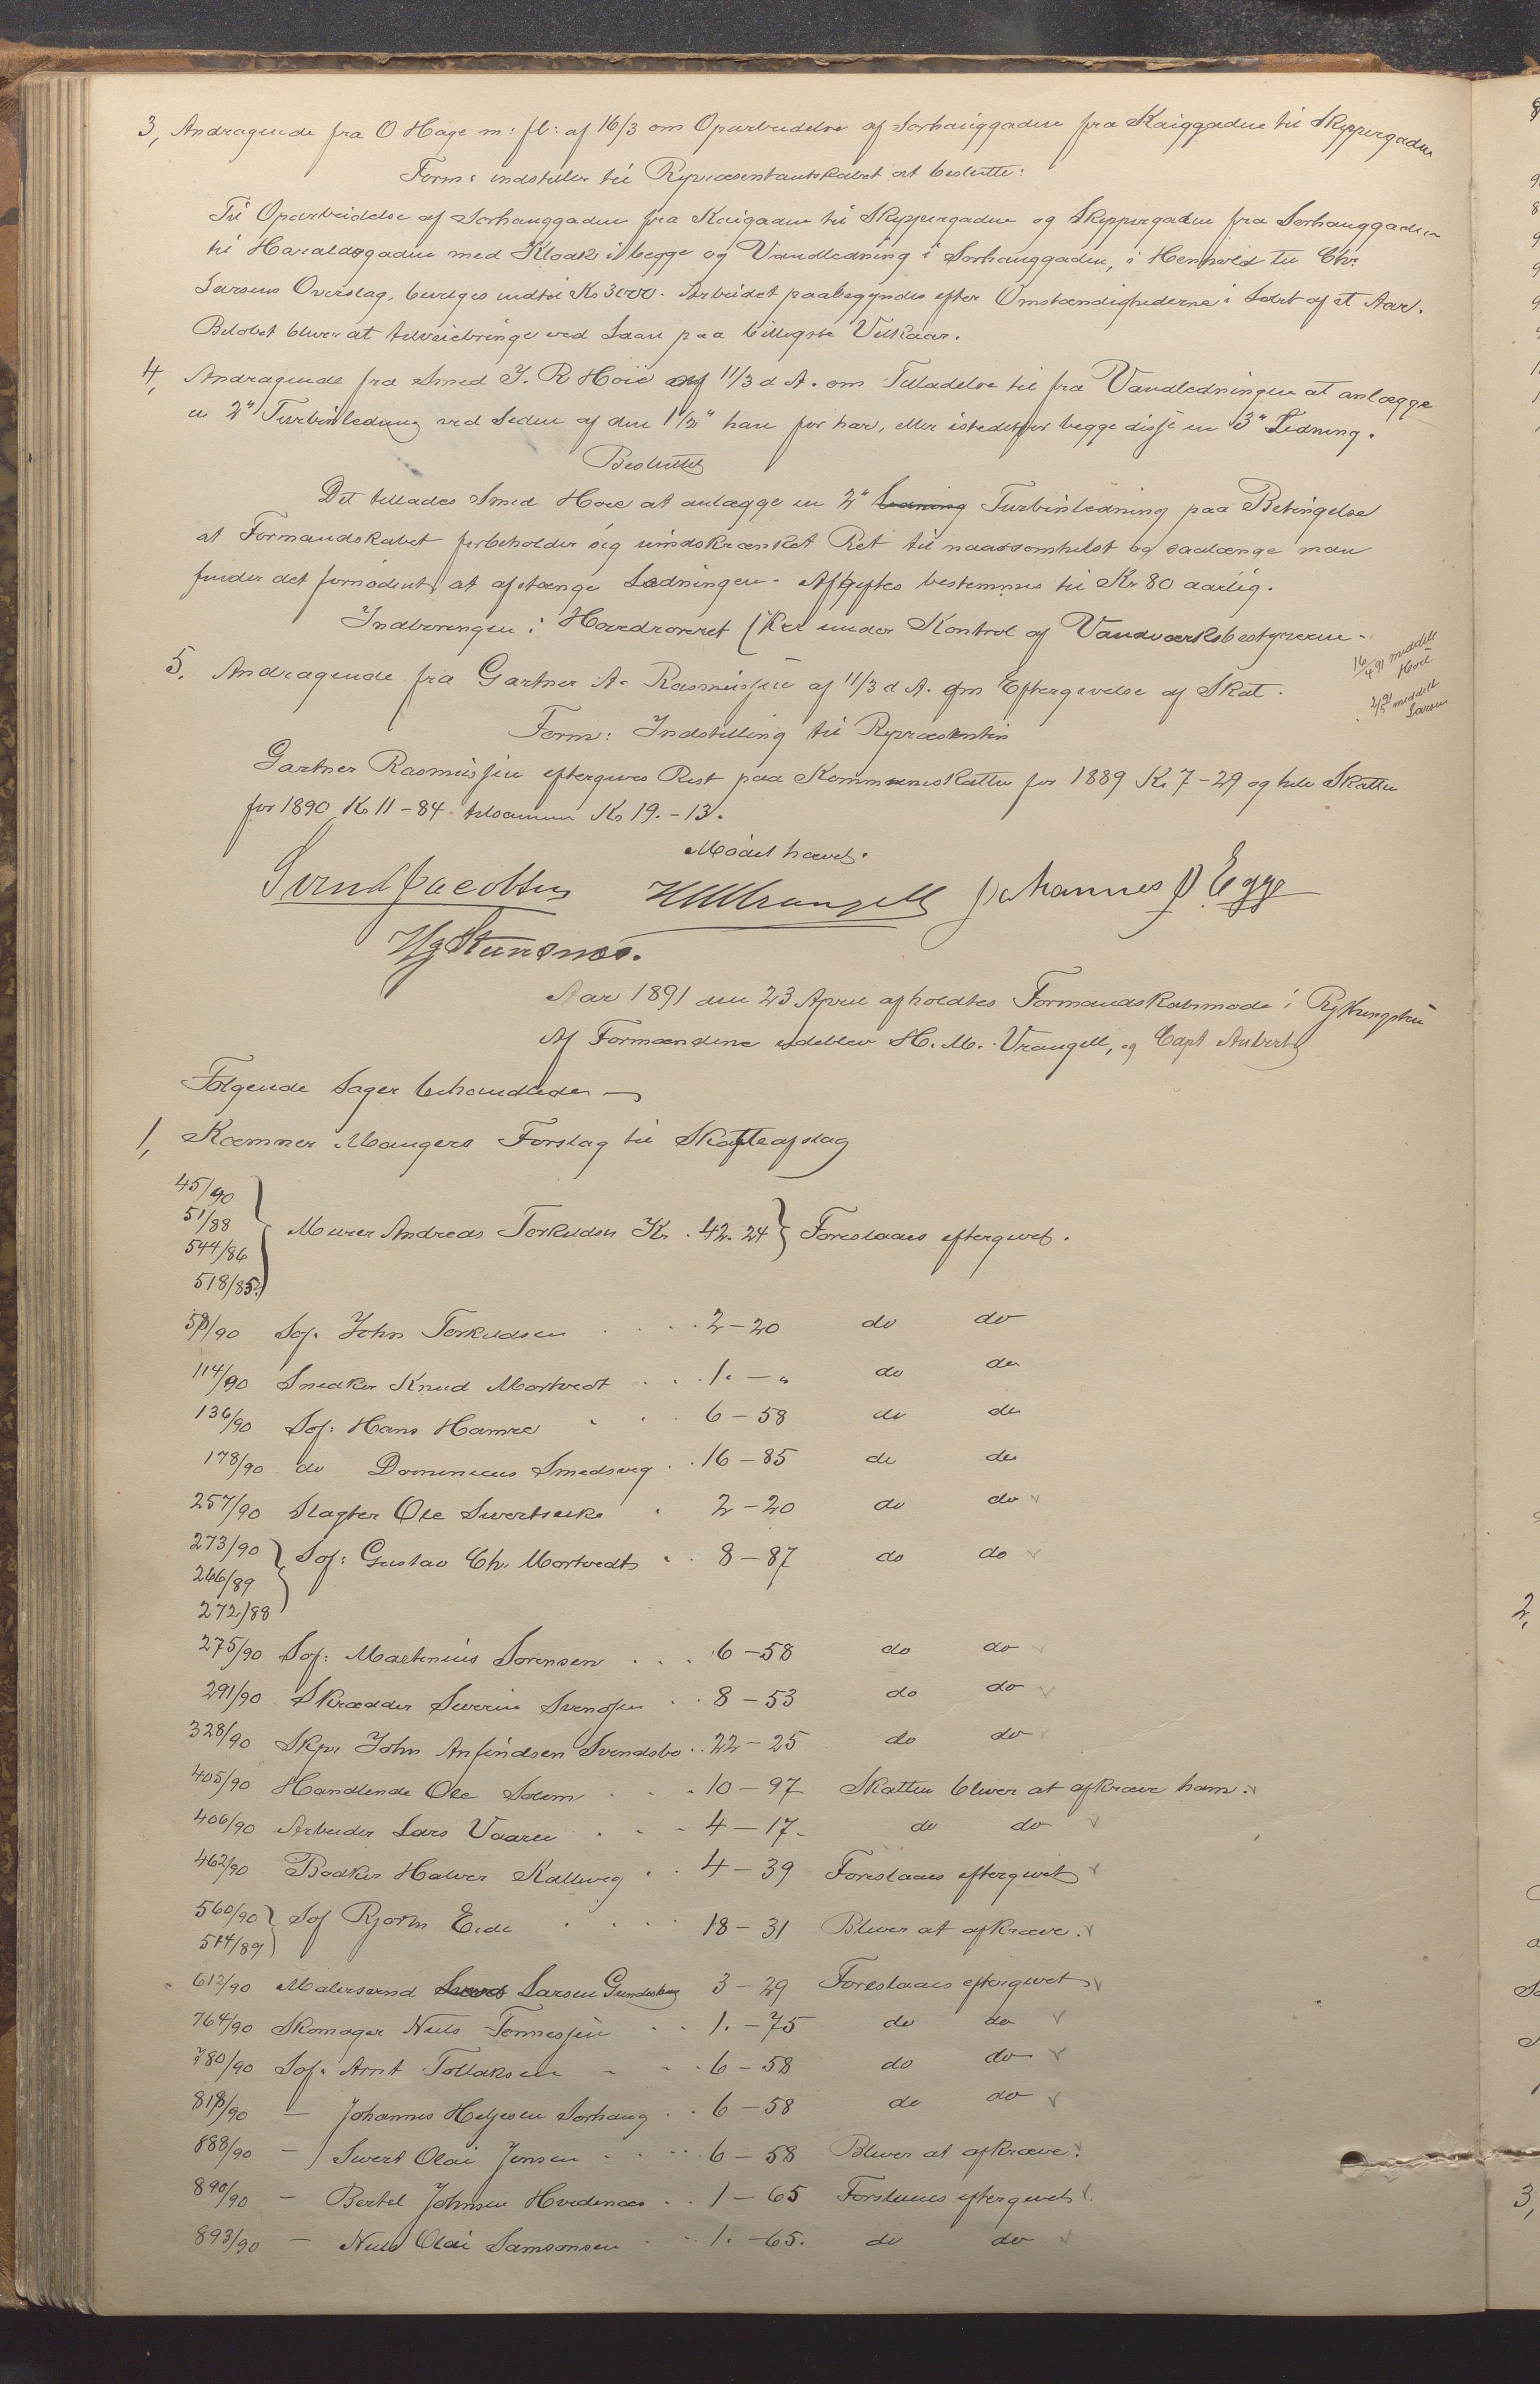 3, Andragende fra O Hage m: fl: af 16/3 om Oparbeidelse af Sorhauggaden fra Kaiggaden til Skippergaden
Form: indstiller til Repræsentantskabet at beslutte:
Til Oparbeidelse af Sorhauggaden fra Kaigaden til Skippergaden og Skippergaden fra Sorhauggaden
til Haraldsgaden med Kloak i begge og Vandledning i Sorhauggaden, i Henhold til Chr.
Larsens Overslag, bevilges indtil Kr 3000. Arbeidet paabegyndes efter Omstændighederne i Løbet af et Aar.
Beløbet bliver at tilveiebringe ved Laan paa billigste Vilkaar.
4, Andragende fra Smed J. R Hoie af 11/3 d A. om Tilladelse til fra Vandledningen at anlægge
en 2" Turbinledning ved Siden af den 1 1/2" han før har, eller istedetfor begge disse en 3" Ledning.
Besluttet
Det tillades Smed Hoie at anlægge en 2" Ledning Turbinledning paa Betingelse
at Formandskabet forbeholder sig uindskrænket Ret til naarsomhelst og saalænge man
finder det fornødent, at afstænge Ledningen. Afgiften bestemmes til Kr 80 aarlig.
Indboringen i Hovedroreret sker under Kontrol af Vandværksbestyreren.
16/4 91 meddelt
Hoie
2/5 91 meddelt
Larsen
5. Andragende fra Gartner A. Rasmussen af 11/3 d A. om Eftergivelse af Skat.
Form: Indstilling til Repræsentskb
Gartner Rasmussen eftergives Rest paa Kommuneskatten for 1889 Kr 7-29 og hele Skatten
for 1890 Kr 11-84 tilsammen Kr 19.-13.
Mødet hævet.
Svend Jacobsen HMWrangell Johannes J Egge
Hg Stensnes.
Aar 1891 den 23 April afholdtes Formandskabsmøde i
Af Formændene udeblev H. M. Vrangell, og Capt Aubert
Følgende Sager behandledes
1, Kæmner Mangers Forslag til Skatteafslag
45/90
51/88
544/86
518/85
Murer Andreas Torkildsen Kr. 42.24 Foreslaaes eftergivet.
58/90 Søf. John Torkildsen 2-20 do do
114/90 Snedker Knud Mortvedt 1.-" do do
136/90 Søf: Hans Hamre 6-58 do do
178/90 do Dominicus Smedsvig 16-85 do do
257/90 Slagter Ole Sivertseike 2-20 do do
273/90
266/89
272/88
Søf: Gustav Chr. Mortvedt 8-87 do do
275/90 Søf: Martinius Sørensen 6-58 do do
291/90 Skrædder Severin Svendsen 8-53 do do
328/90 Skpr John Anfindsen Svendsbo 22-25 do do
405/90 Handlende Ole Solem 10-97 Skatten bliver at afkræve ham.
406/90 Arbeider Lars Vaare 4-17. do do
462/90 Bødker Halvor Kallevig 4-39 Foreslaaes eftergivet
560/90
514/89
Søf Bjørn Eide 18-31 Bliver at afkræve.
612/90 Malersvend Larsen 3-29 Foreslaaes eftergivet
764/90 Skomager Niels Tønnessen 1.-75 do do
780/90 Søf. Arnt Tollaksen 6-58 do do
818/90 — Johannes Helgesen Sørhaug 6-58 do do
888/90 — Sivert Olai Jensen 6-58 Bliver at afkræve.
890/90 — Bertel Johnsen Hvidenæs 1-65 Foreslaaes eftergivet.
893/90 — Niels Olai Samsonsen 1.-65. do do